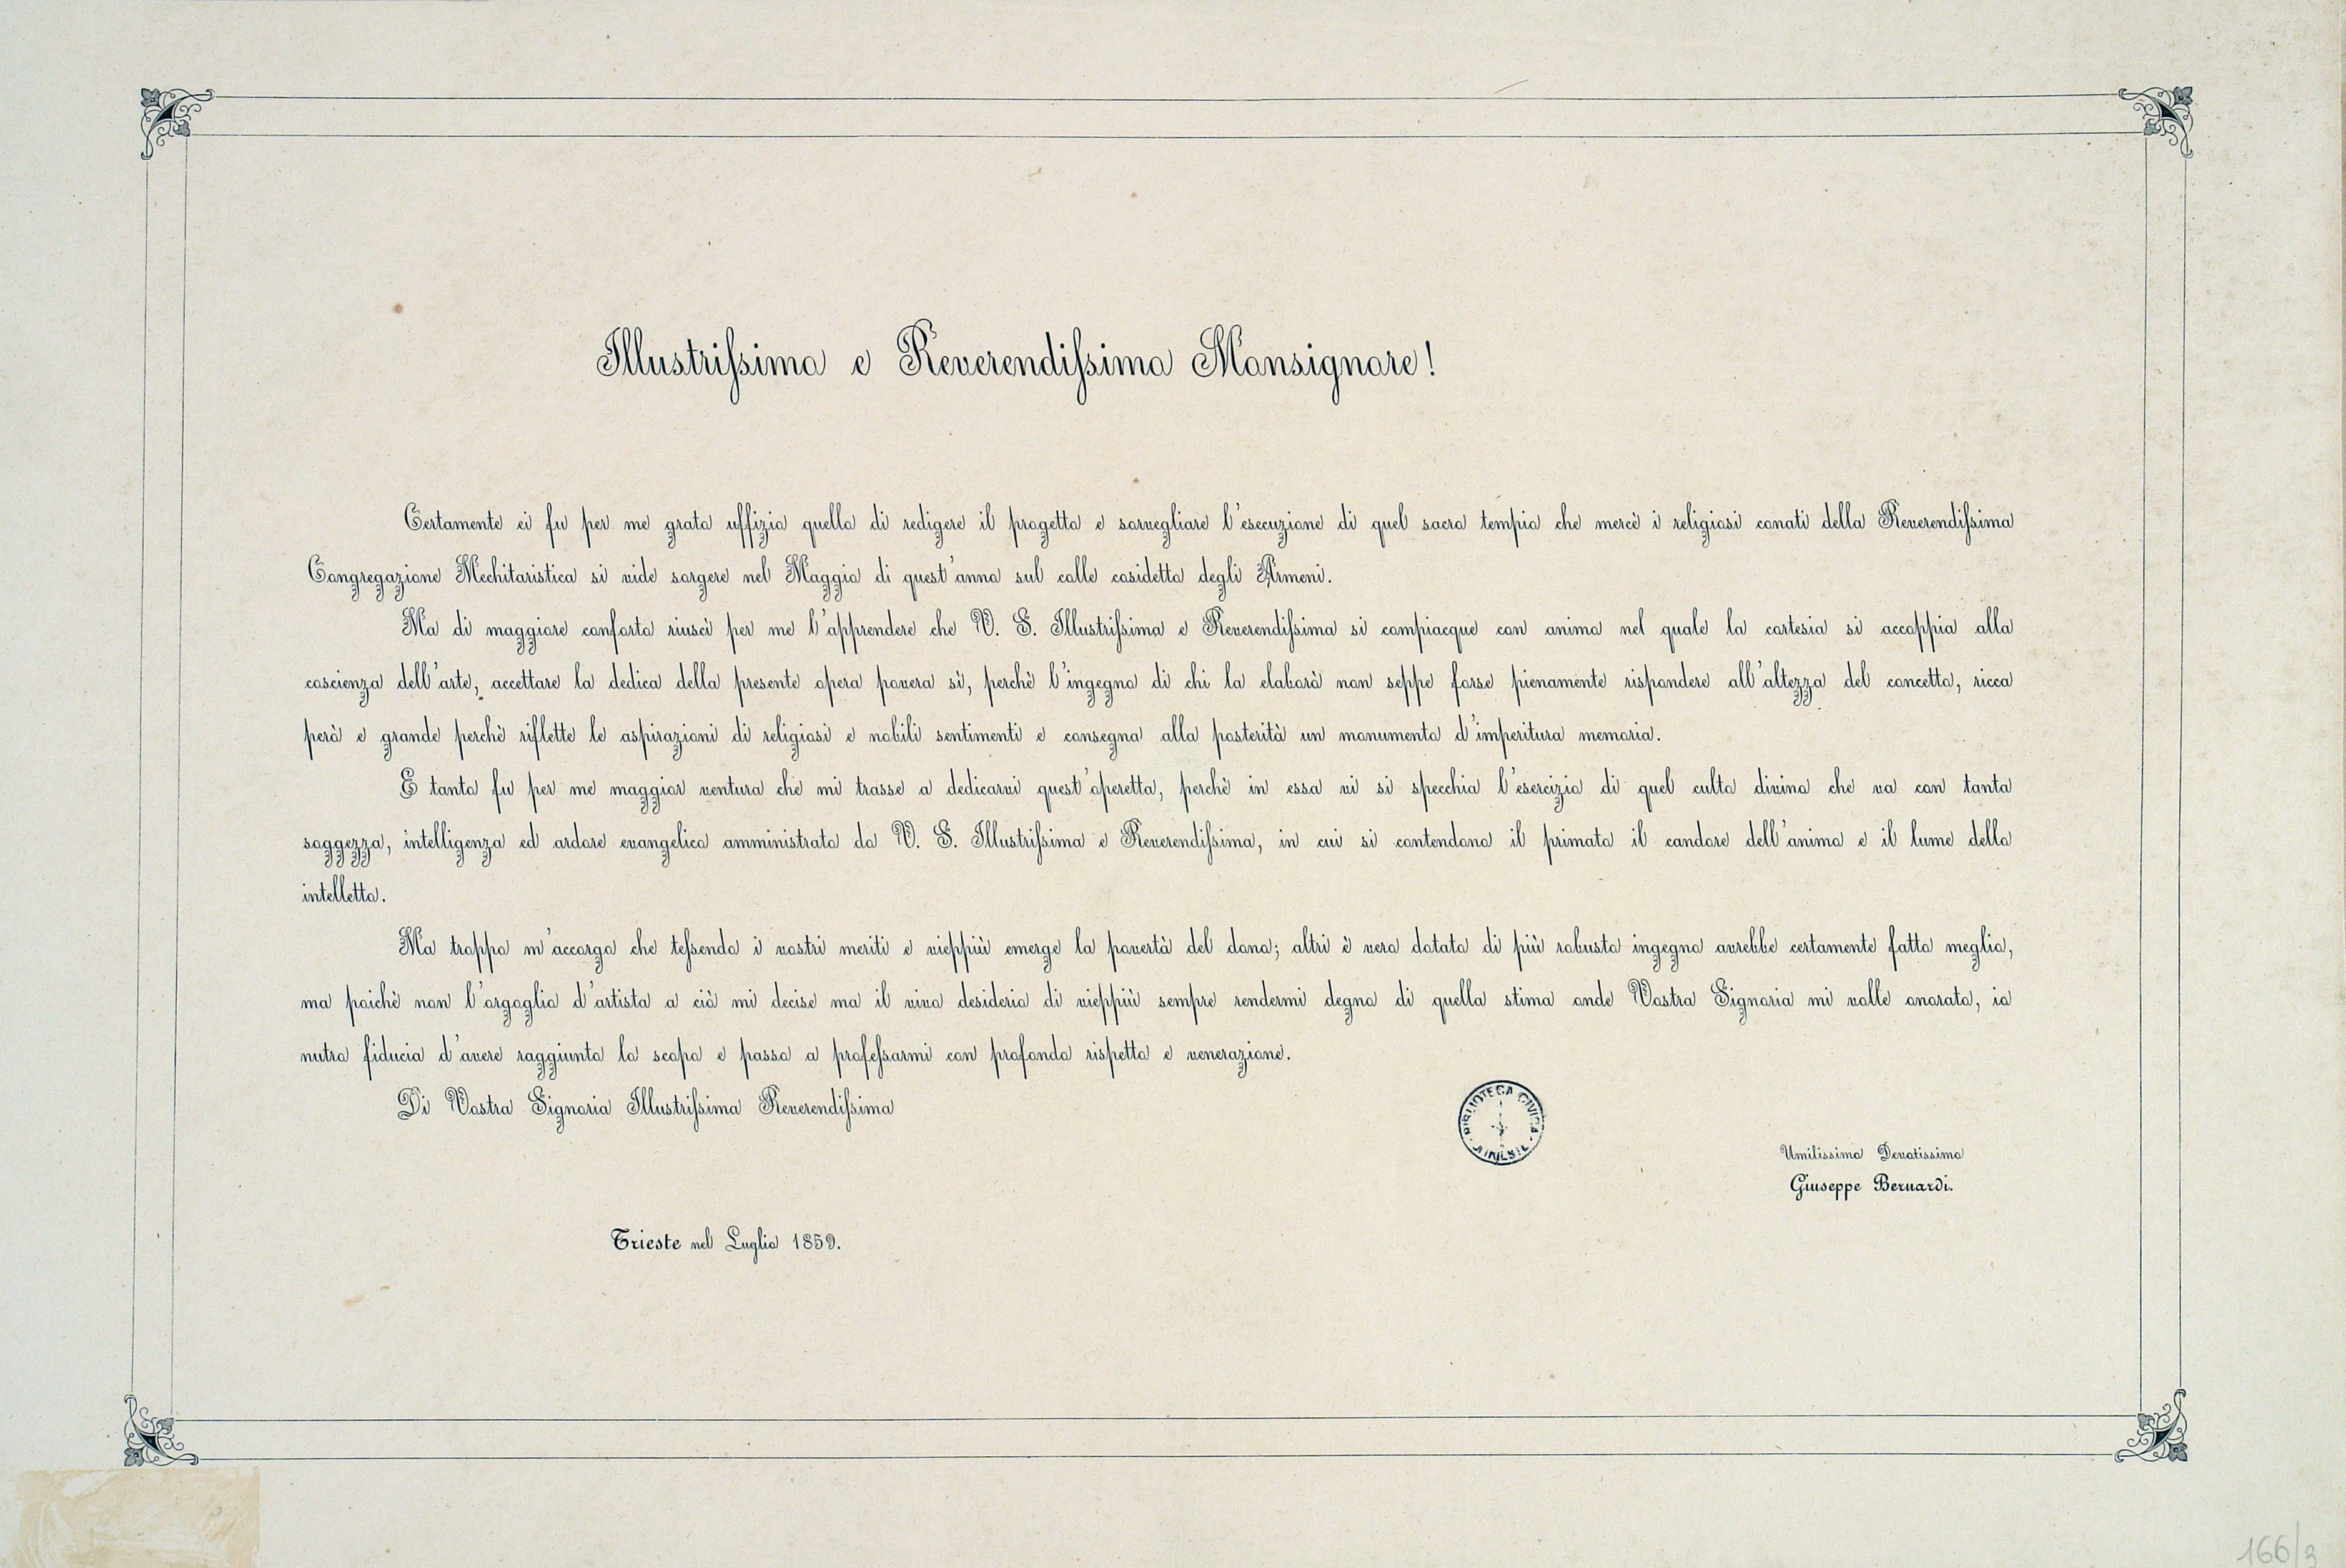 Illustrissimo e Reverendissimo Monsignore!
Certamente ei fu per me grato uffizio quello di redigere il progetto e sorvegliare l'esecuzione di quel sacro tempio che mercè i religiosi conati della Reverendissima
Congregazione Mechitaristica si vide sorgere nel Maggio di quest'anno sul colle cosidetto degli Armeni.
Ma di maggiore conforto riuscì per me l'apprendere che V. S. Illustrissima e Reverendissima si compiacque con animo nel quale la cortesia si accoppia alla
coscienza dell'arte, accettare la dedica della presente opera povera sì, perchè l'ingegno di chi la elaborò non seppe forse pienamente rispondere all'altezza del concetto, ricca
però e grande perchè riflette le aspirazioni di religiosi e nobili sentimenti e consegna alla posterità un monumento d'imperitura memoria.
E tanto fu per me maggior ventura che mi trasse a dedicarvi quest'operetta, perchè in essa vi si specchia l'esercizio di quel culto divino che va con tanta
saggezza, intelligenza ed ardore evangelico amministrato da V. S. Illustrissima e Reverendissima, in cui si contendono il primato il candore dell'animo e il lume dello
intelletto.
Ma troppo m'accorgo che tessendo i vostri meriti e vieppiù emerge la povertà del dono; altri è vero dotato di più robusto ingegno avrebbe certamente fatto meglio,
ma poichè non l'orgoglio d'artista a ciò mi decise ma il vivo desiderio di vieppiù sempre rendermi degno di quella stima onde Vostra Signoria mi volle onorato, io
nutro fiducia d'avere raggiunto lo scopo e passo a professarmi con profondo rispetto e venerazione.
Di Vostra Signoria Illustrissima Reverendissima
BIBLIOTECA CIVICA
TRIESTE
Umilissimo Devotissimo
Giuseppe Bernardi.
Trieste nel Luglio 1859.
166/3